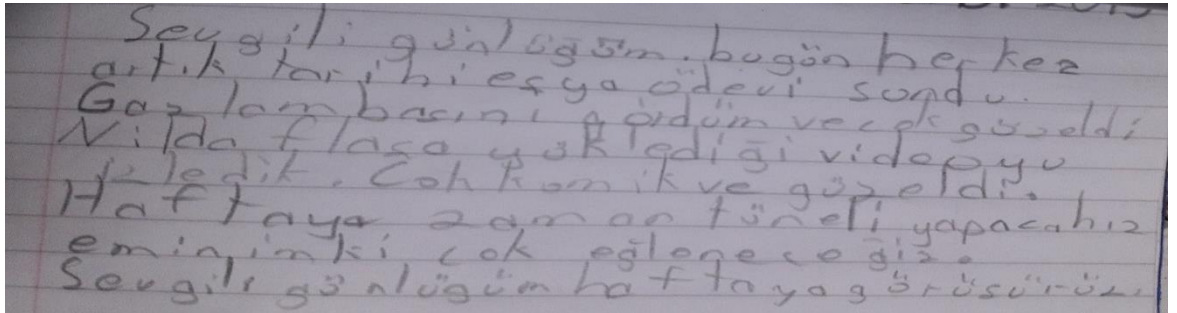 Sevgili günlüğüm. bugün herkez
artık tarihi eşya ödevi sundu.
Gaz lambasını gördüm ve çok güzeldi
Nilda flaşa yüklediği videoyu
izledik. Çok komik ve güzeldi.
Haftaya zaman tüneli yapacahız
eminimki çok eğleneceğiz.
Sevgili günlüğüm haftaya görüşürüz.